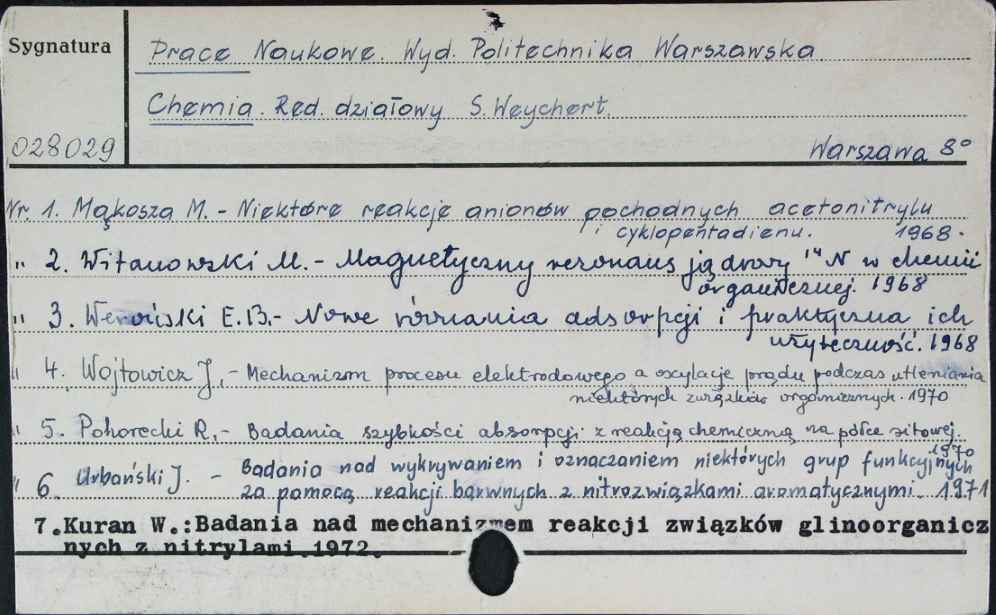 Sygnatura
Prace Naukowe. Wyd. Politechnika Warszawska
Chemia. Red. działowy S. Weychert.
028029
Warszawa 8°
Nr. 1. Mąkosza M. - Niektóre reakcje anionów pochodnych acetonitrylu
i cyklopentadienu. 1968.
" 2. Witanowski M. - Magnetyczny rezonans jądrowy ¹⁴N w chemii
organicznej. 1968
" 3. E.B. - Nowe równania adsorpcji i praktyczna ich
użyteczność. 1968
" 4. Wojtowicz J. - Mechanizm procesu elektrodowego a oscylacje prądu podczas utleniania
niektórych związków organicznych. 1970
" 5. Pohorecki R. - Badania szybkości absorpcji z reakcją chemiczną na półce sitowej.
1970
" 6. Urbański J. - Badania nad wykrywaniem i oznaczaniem niektórych grup funkcyjnych
za pomocą reakcji barwnych z nitrozwiązkami aromatycznymi. 1971
7.Kuran W.:Badania nad mechanizmem reakcji związków glinoorganicz
nych z nitrylami.1972.